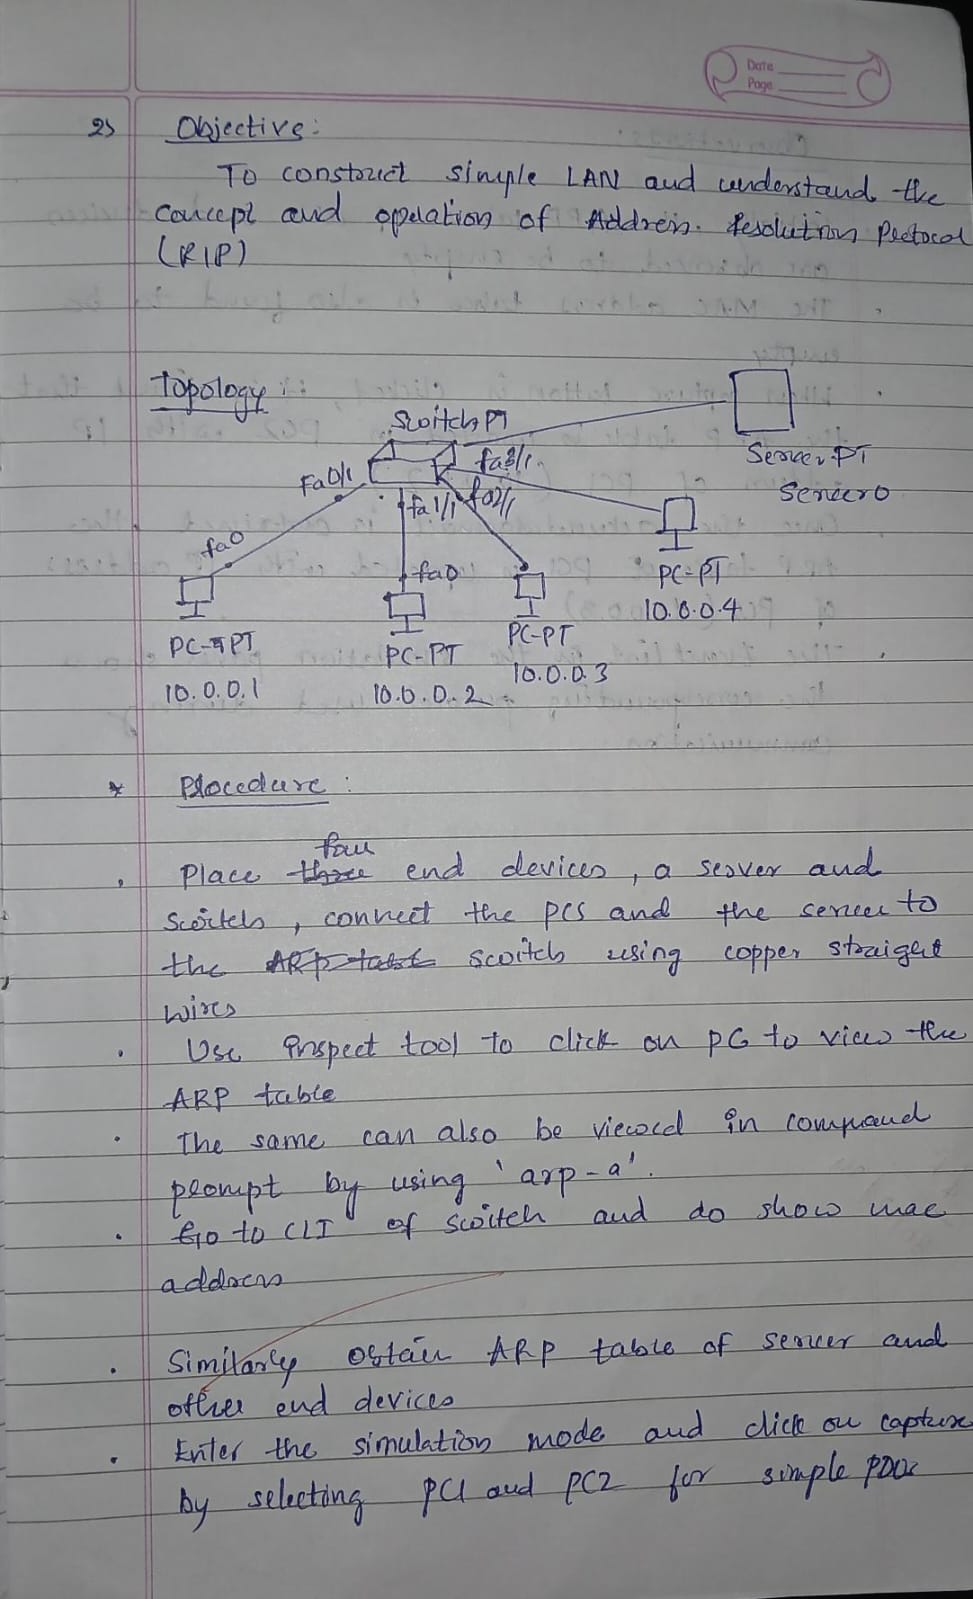 Date
Page
2) Objective:
To construct simple LAN and understand the
concept and operation of Address Resolution Protocol
(RIP)
Topology:
Switch PT
Fa0/1
fa3/1
fa1/1
fa2/1
Server-PT
Server0
fa0
fa0
PC-PT
10.0.0.4
PC-PT
10.0.0.1
PC-PT
10.0.0.2
PC-PT
10.0.0.3
* Procedure:
four
Place three end devices, a server and
switch, connect the PCs and the server to
the ARP table switch using copper straight
wires
Use inspect tool to click on PC to view the
ARP table
The same can also be viewed in command
prompt by using 'arp-a'.
Go to CLI of switch and do show mac
address
Similarly obtain ARP table of server and
other end devices
Enter the simulation mode and click on capture
by selecting PC1 and PC2 for simple PDUs